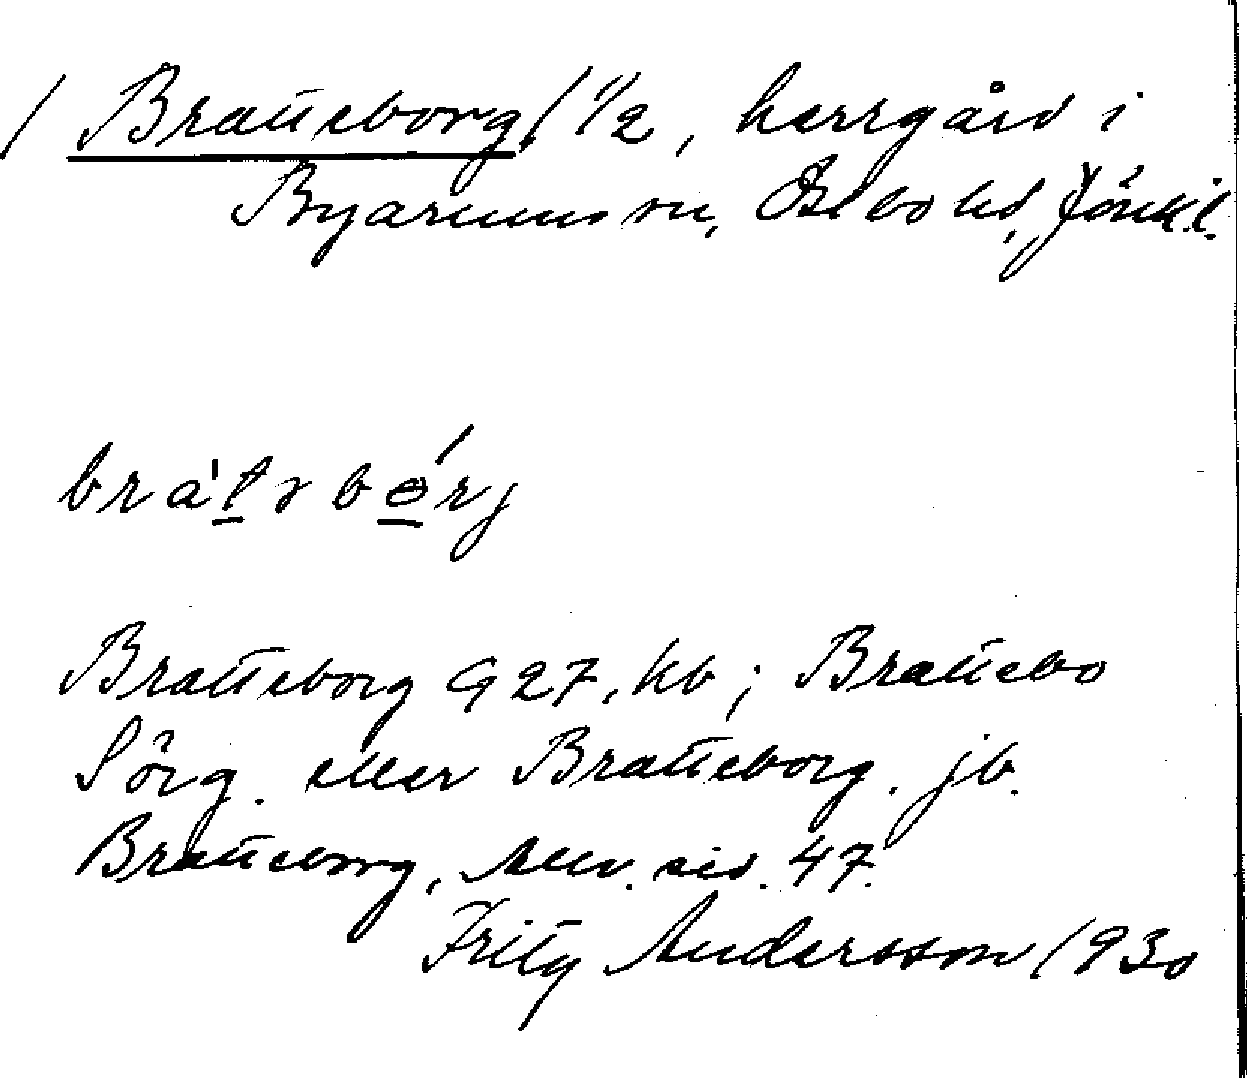 / Bratteborg / 1 1/2, herrgård i
Byarums sn, Östbo hd, Jönk.l.
bra't ɤ bórj
Bratteborg G 27, kb; Brattebo
Sörg. eller Bratteborg. jb.
Bratteborg, Allv. sid. 47.
Fritz Andersson 1930